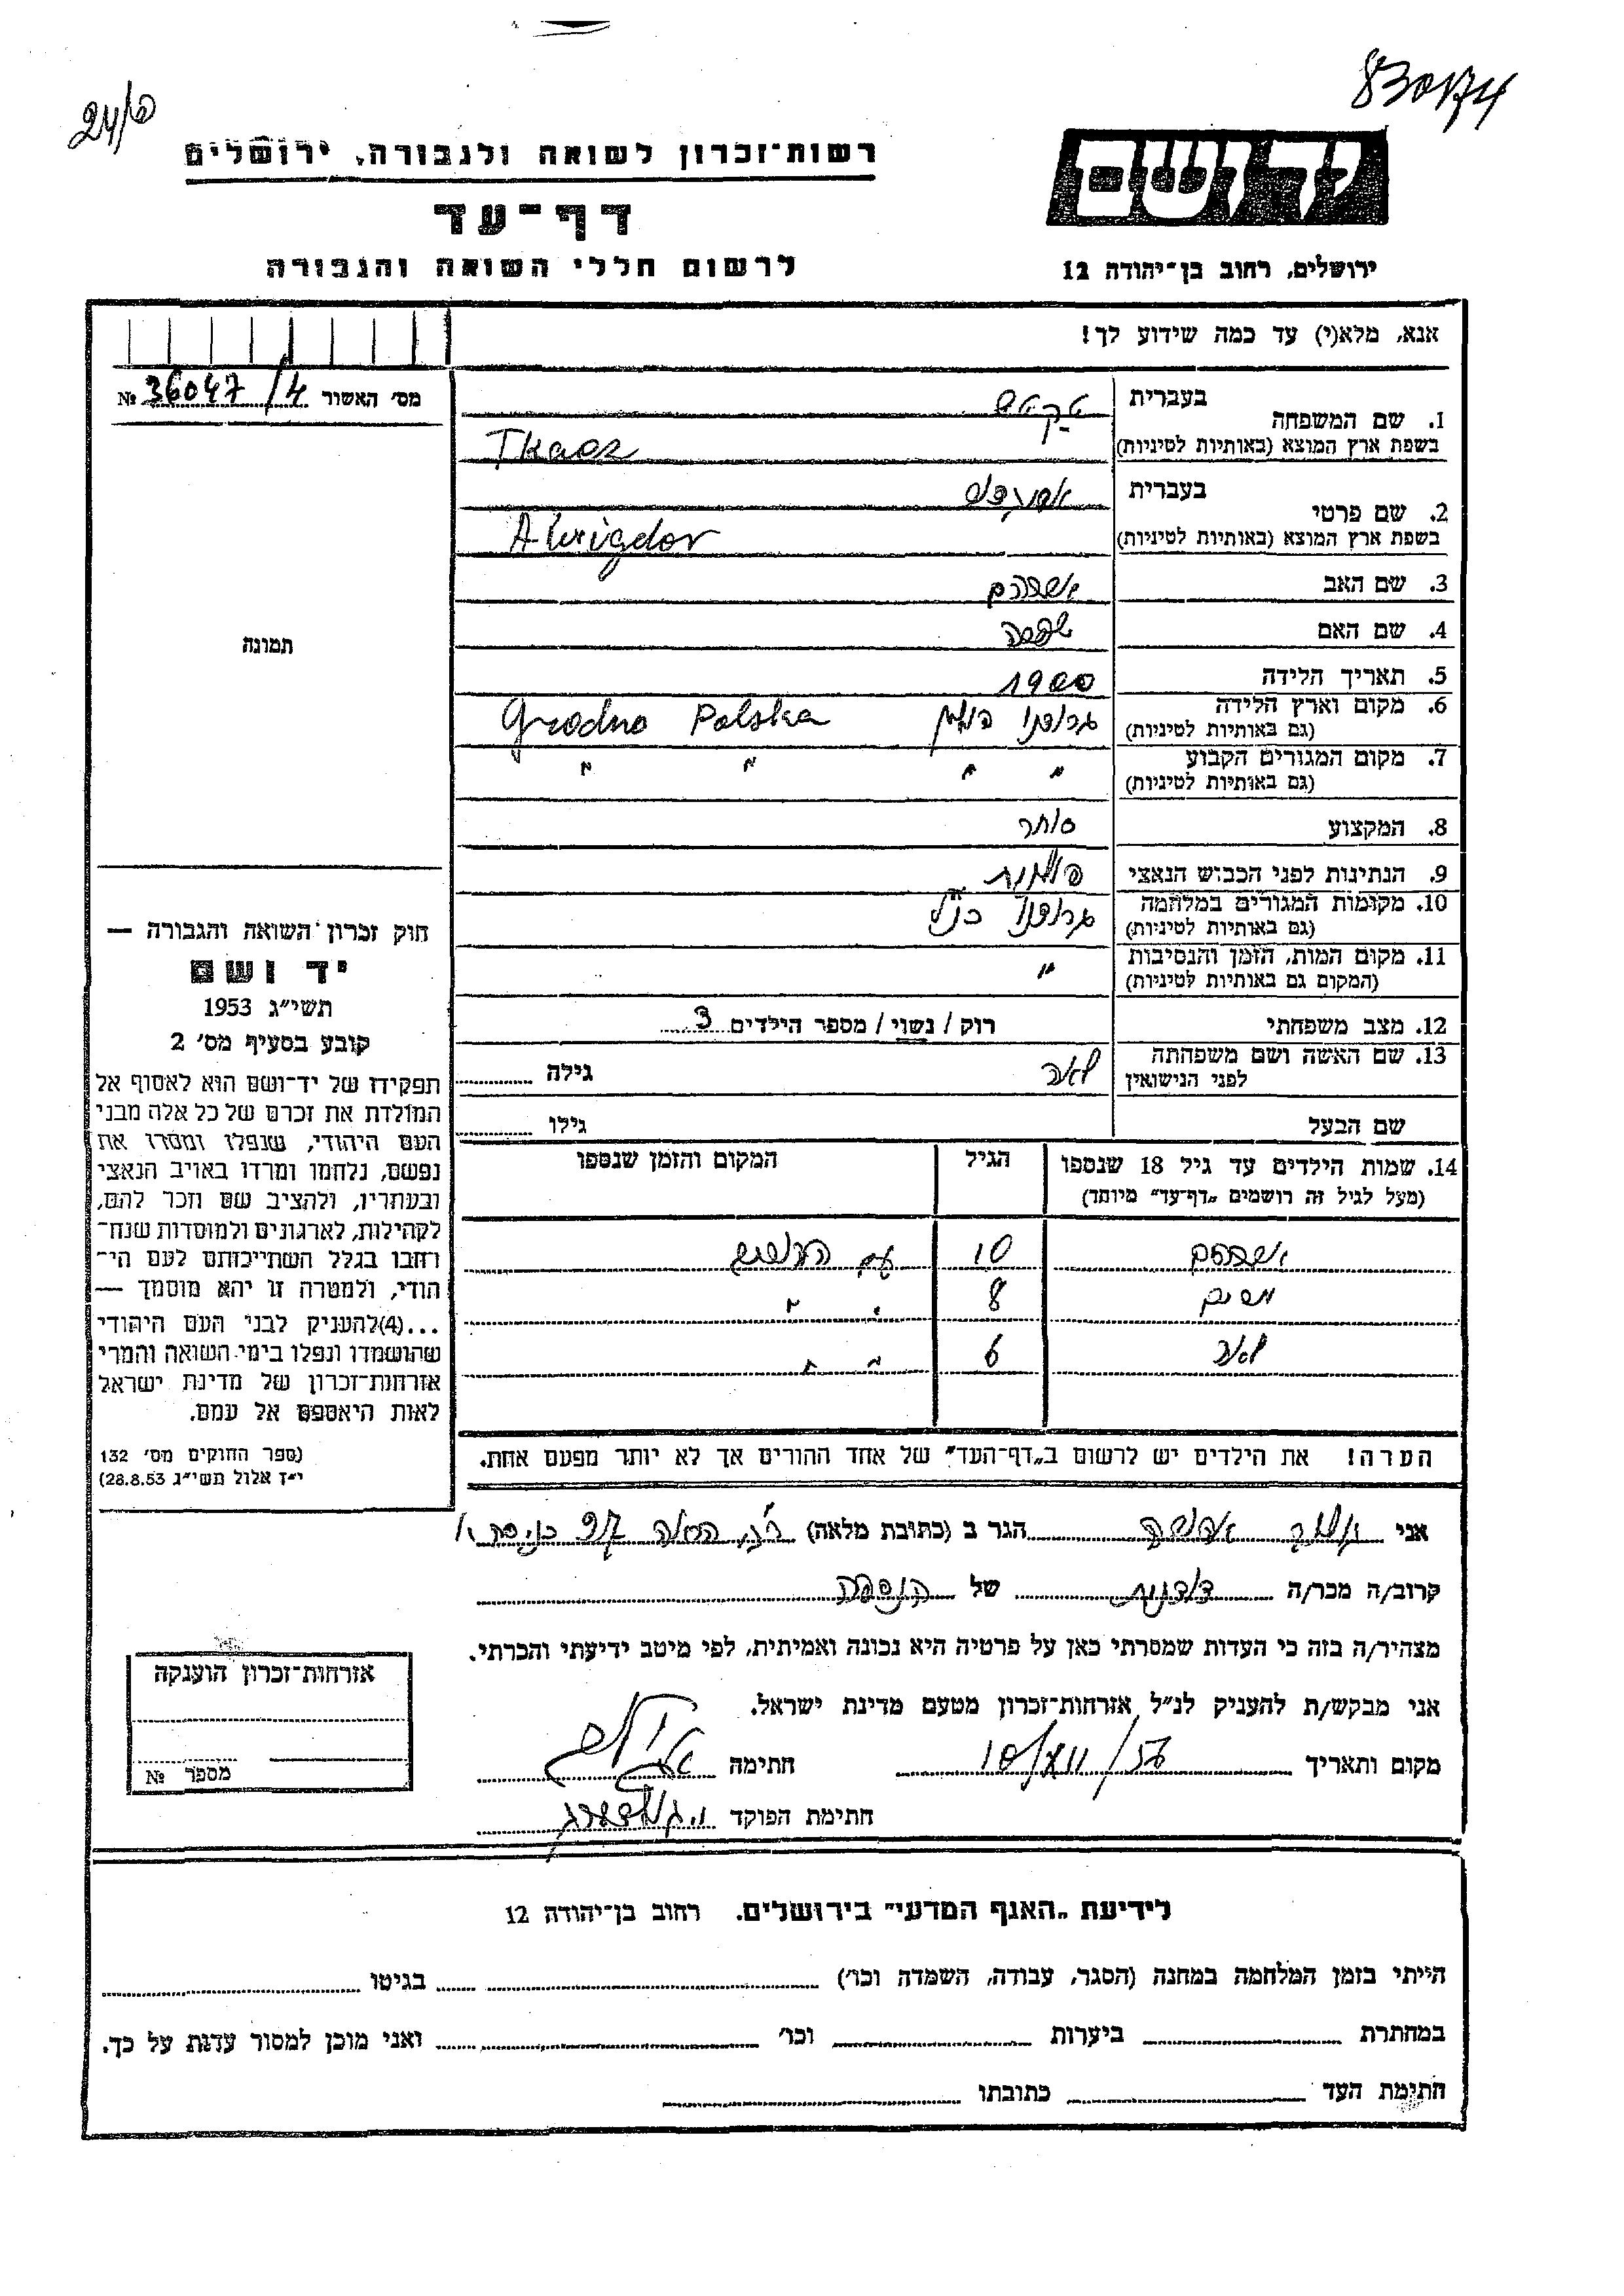 24/6
83074
רשות־זכרון לשואה ולגבורה, ירושלים
דף־עד
לרשום חללי השואה והגבורה
יד ושם
ירושלים, רחוב בן־יהודה 12
אנא, מלא(י) עד כמה שידוע לך!
מס׳ האשור 36047/4 №
תמונה
1. שם המשפחה בעברית
בשפת ארץ המוצא (באותיות לטיניות) Tkacz
2. שם פרטי בעברית
בשפת ארץ המוצא (באותיות לטיניות) Awigdor
3. שם האב אברהם
4. שם האם
5. תאריך הלידה 1900
6. מקום וארץ הלידה גרודנו פולין Grodno Polska
(גם באותיות לטיניות)
7. מקום המגורים הקבוע " " " "
(גם באותיות לטיניות)
8. המקצוע סוחר
9. הנתינות לפני הכבוש הנאצי פולנית
10. מקומות המגורים במלחמה גרודנו כנ"ל
(גם באותיות לטיניות)
11. מקום המות, הזמן והנסיבות "
(המקום גם באותיות לטיניות)
12. מצב משפחתי רוק / נשוי / מספר הילדים 3
13. שם האשה ושם משפחתה לאה גילה
לפני הנישואין
שם הבעל גילו
14. שמות הילדים עד גיל 18 שנספו הגיל המקום והזמן שנספו
(מעל לגיל זה רושמים „דף־עד" מיוחד)
אברהם 10 עם
8 " "
6 " "
הערה! את הילדים יש לרשום ב„דף־העד" של אחד ההורים אך לא יותר מפעם אחת.
חוק זכרון השואה והגבורה —
יד ושם
תשי״ג 1953
קובע בסעיף מס׳ 2
תפקידו של יד־ושם הוא לאסוף אל
המולדת את זכרם של כל אלה מבני
העם היהודי, שנפלו ומסרו את
נפשם, נלחמו ומרדו באויב הנאצי
ובעוזריו, ולהציב שם וזכר להם,
לקהילות, לארגונים ולמוסדות שנח־
רבו בגלל השתייכותם לעם הי־
הודי, ולמטרה זו יהא מוסמך —
...(4)להעניק לבני העם היהודי
שהושמדו ונפלו בימי השואה והמרי
אזרחות־זכרון של מדינת ישראל
לאות היאספם אל עמם.
(ספר החוקים מס׳ 132
י״ז אלול תשי״ג 28.8.53)
אני הגר ב (כתובת מלאה)
קרוב/ה מכר/ה של
מצהיר/ה בזה כי העדות שמסרתי כאן על פרטיה היא נכונה ואמיתית, לפי מיטב ידיעתי והכרתי.
אני מבקש/ת להעניק לנ״ל אזרחות־זכרון מטעם מדינת ישראל.
מקום ותאריך חתימה
חתימת הפוקד
אזרחות־זכרון הוענקה
מספר №
לידיעת „האגף המדעי" בירושלים. רחוב בן־יהודה 12
הייתי בזמן המלחמה במחנה (הסגר, עבודה, השמדה וכו׳) בגיטו
במחתרת ביערות וכו׳ ואני מוכן למסור עדות על כך.
חתימת העד כתובתו